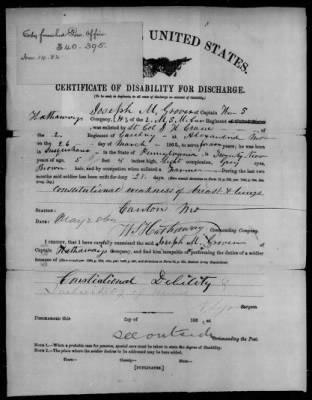 Copy furnished Pen. Office
340.395
Nov. 14. 82
UNITED STATES.
CERTIFICATE OF DISABILITY FOR DISCHARGE.
Joseph M. Grover of Captain Wm S
Hathaways Company, (H) of the 2. M.S.M. Cav Regiment of
was enlisted by Lt Col J H Crane of
the 2. Regiment of Cavalry at Alexandria Mo
on the 26 day of March 1862, to serve years; he was born
in Susquehana in the State of Pennsylvania is Twenty Nine
years of age, 5 feet inches high, Light complexion, Grey eyes,
Brown hair, and by occupation when enlisted a Farmer. During the last two
months said soldier has been unfit for duty 28 days.
constitutional weakness of breast & lungs
STATION: Canton Mo
DATE: May 20 62
W S Hathaway
Commanding Company.
I CERTIFY, that I have carefully examined the said Joseph M. Grover of
Captain Hathaways Company, and find him incapable of performing the duties of a soldier
because of
Constitutional Debility
Surgeon.
DISCHARGED this day of 186 , at
see outside
Commanding the Post.
NOTE 1.—When a probable case for pension, special care must be taken to state the degree of disability.
NOTE 2.—The place where the soldier desires to be addressed may be here added.
[DUPLICATES.]